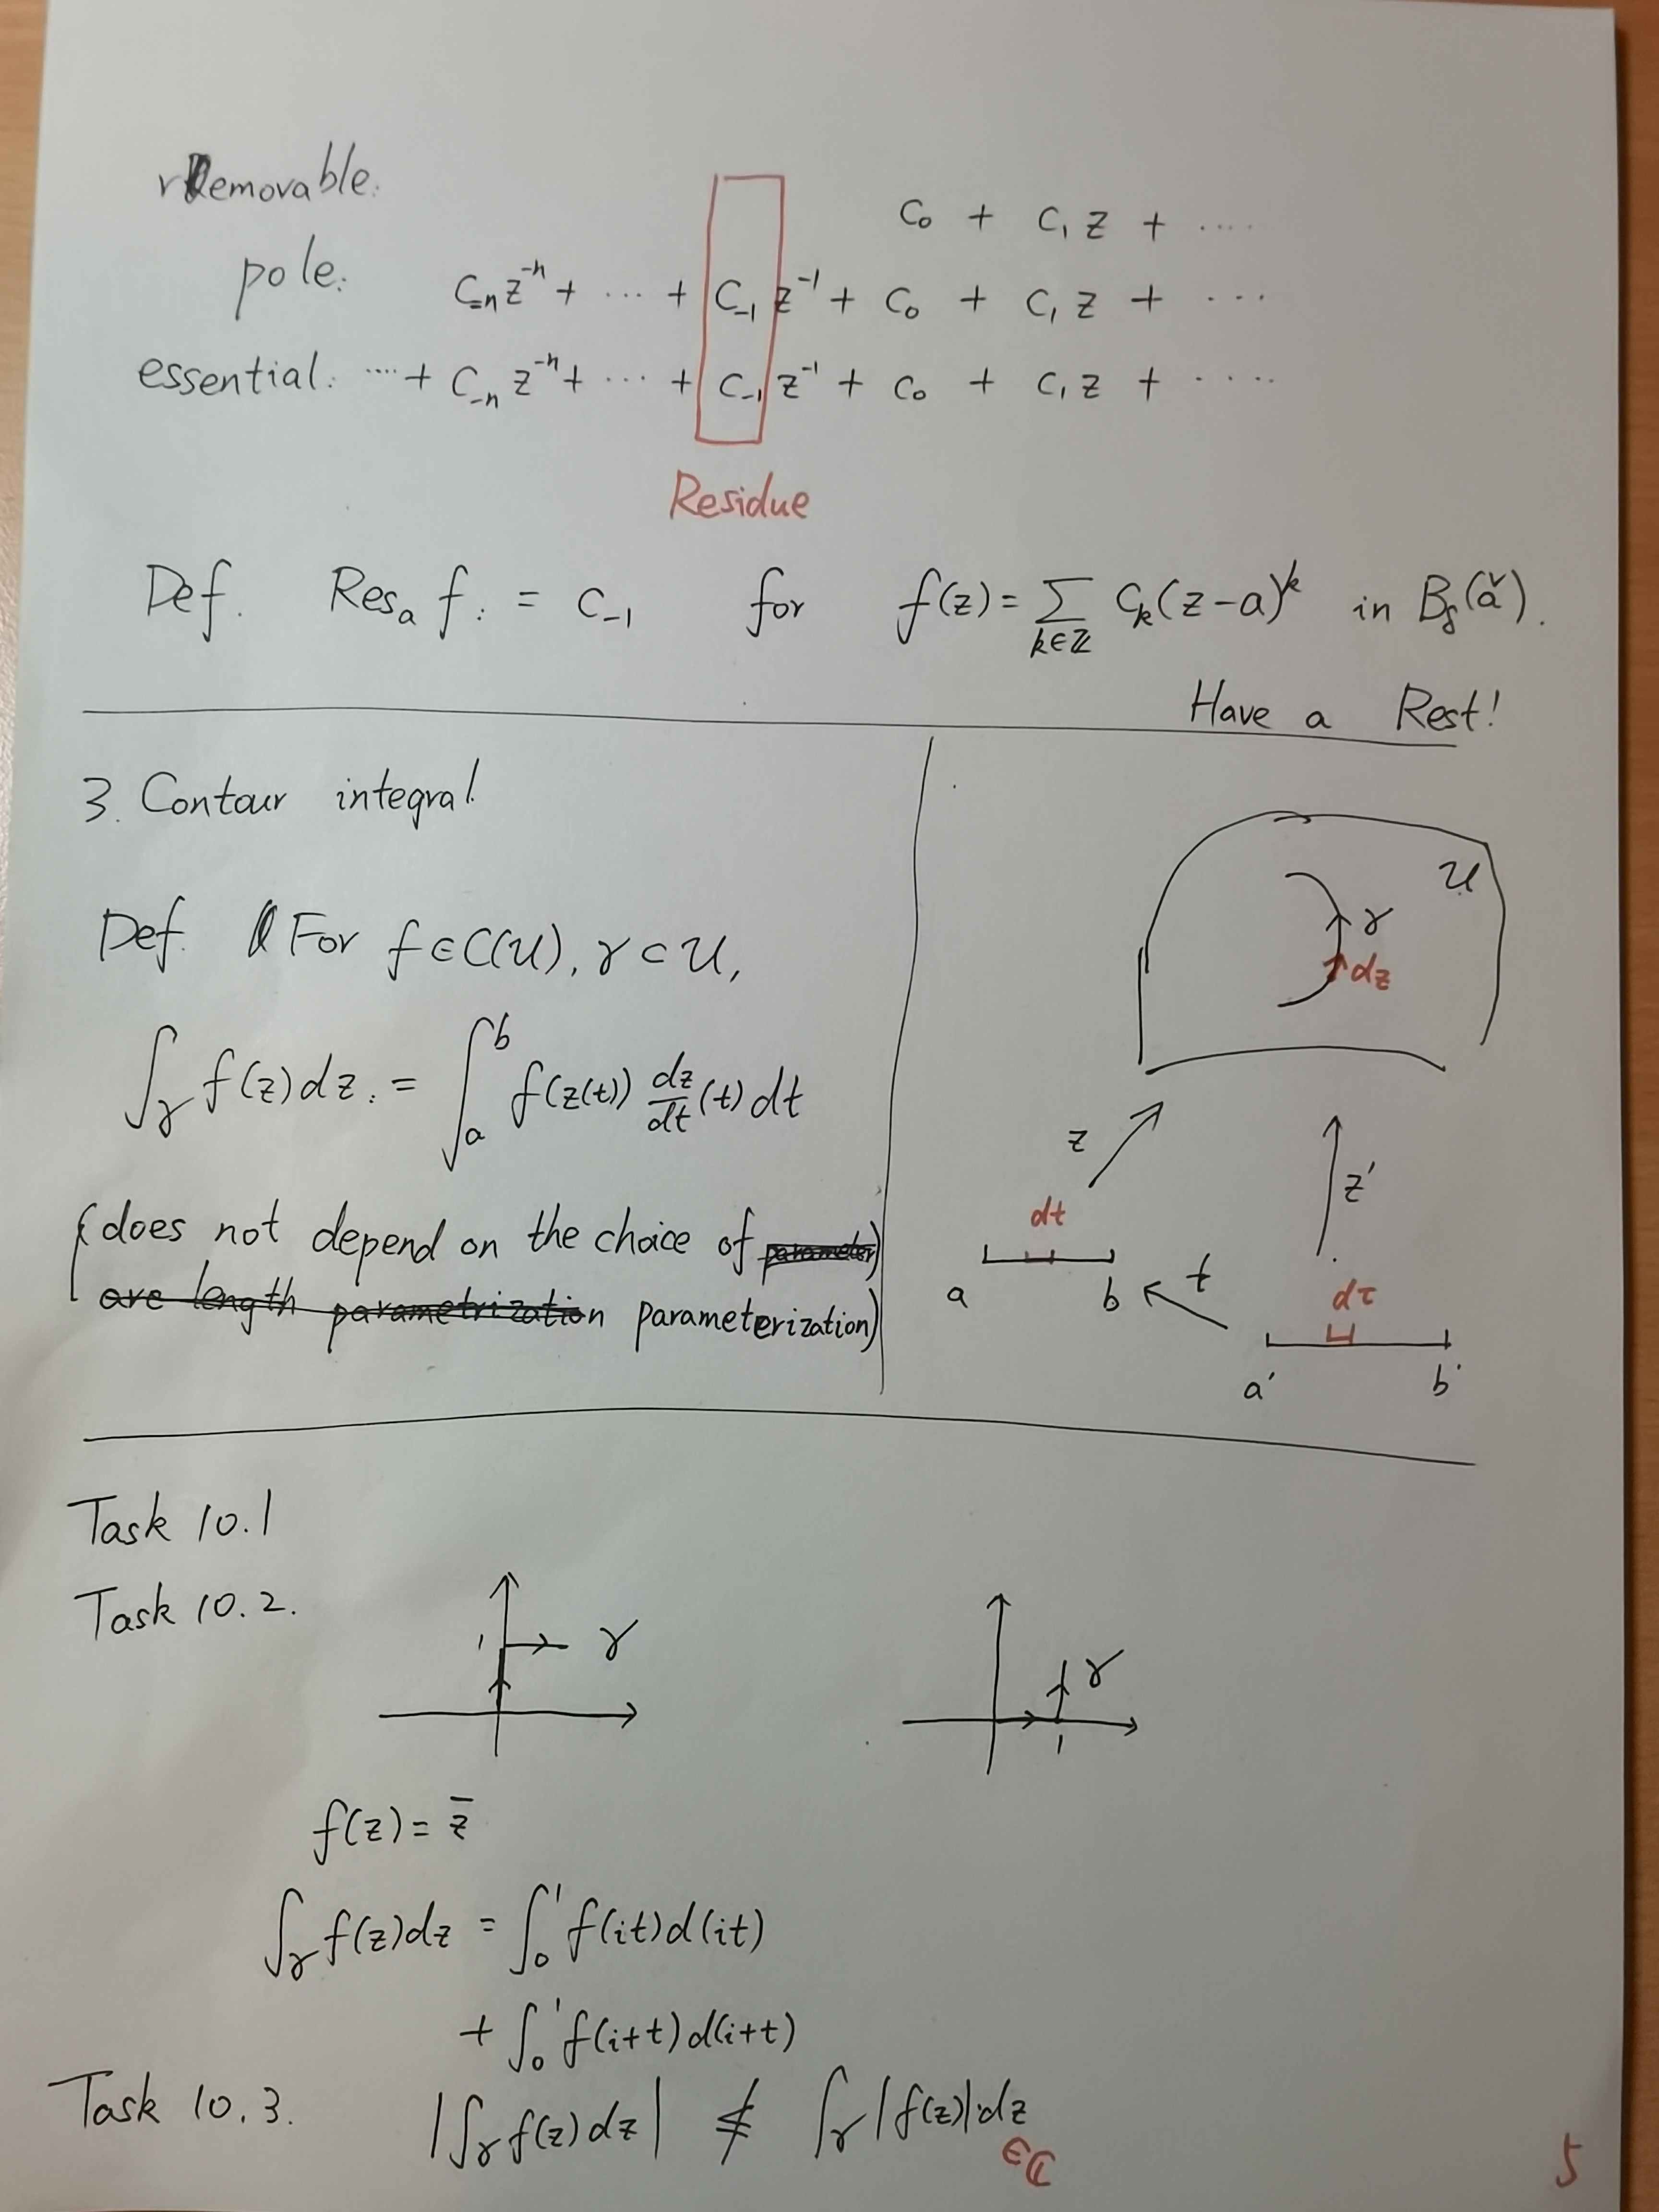 removable:
c₀ + c₁ z + ····
pole: c₋ₙ z⁻ⁿ + ··· + c₋₁ z⁻¹ + c₀ + c₁ z + ···
essential: ····+ c₋ₙ z⁻ⁿ + ··· + c₋₁ z⁻¹ + c₀ + c₁ z + ·····
Residue
Def. Resₐ f := c₋₁ for f(z) = ∑_{k∈ℤ} cₖ(z-a)ᵏ in B_δ(ǎ).
Have a Rest!
3. Contour integral
Def. For f∈C(U), γ⊂U,
∫_γ f(z)dz := ∫_a^b f(z(t)) dz/dt (t) dt
(does not depend on the choice of
parameterization)
U
γ
dz
z
z'
dt
a b
t
dτ
a' b'
Task 10.1
Task 10.2.
1 γ
γ
1
f(z) = z̄
∫_γ f(z)dz = ∫_0^1 f(it)d(it)
+ ∫_0^1 f(i+t)d(i+t)
Task 10.3. |∫_γ f(z)dz| ≰ ∫_γ |f(z)|dz
∈ℂ
5